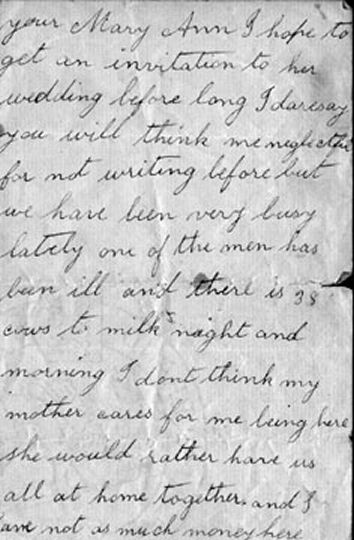 your Mary Ann I hope to
get an invitation to her
wedding before long I daresay
you will think me neglectful
for not writing before but
we have been very busy
lately one of the men has
been ill and there is 38
cows to milk night and
morning I dont think my
mother cares for me being here
she would rather have us
all at home together and I
ave not as much money here